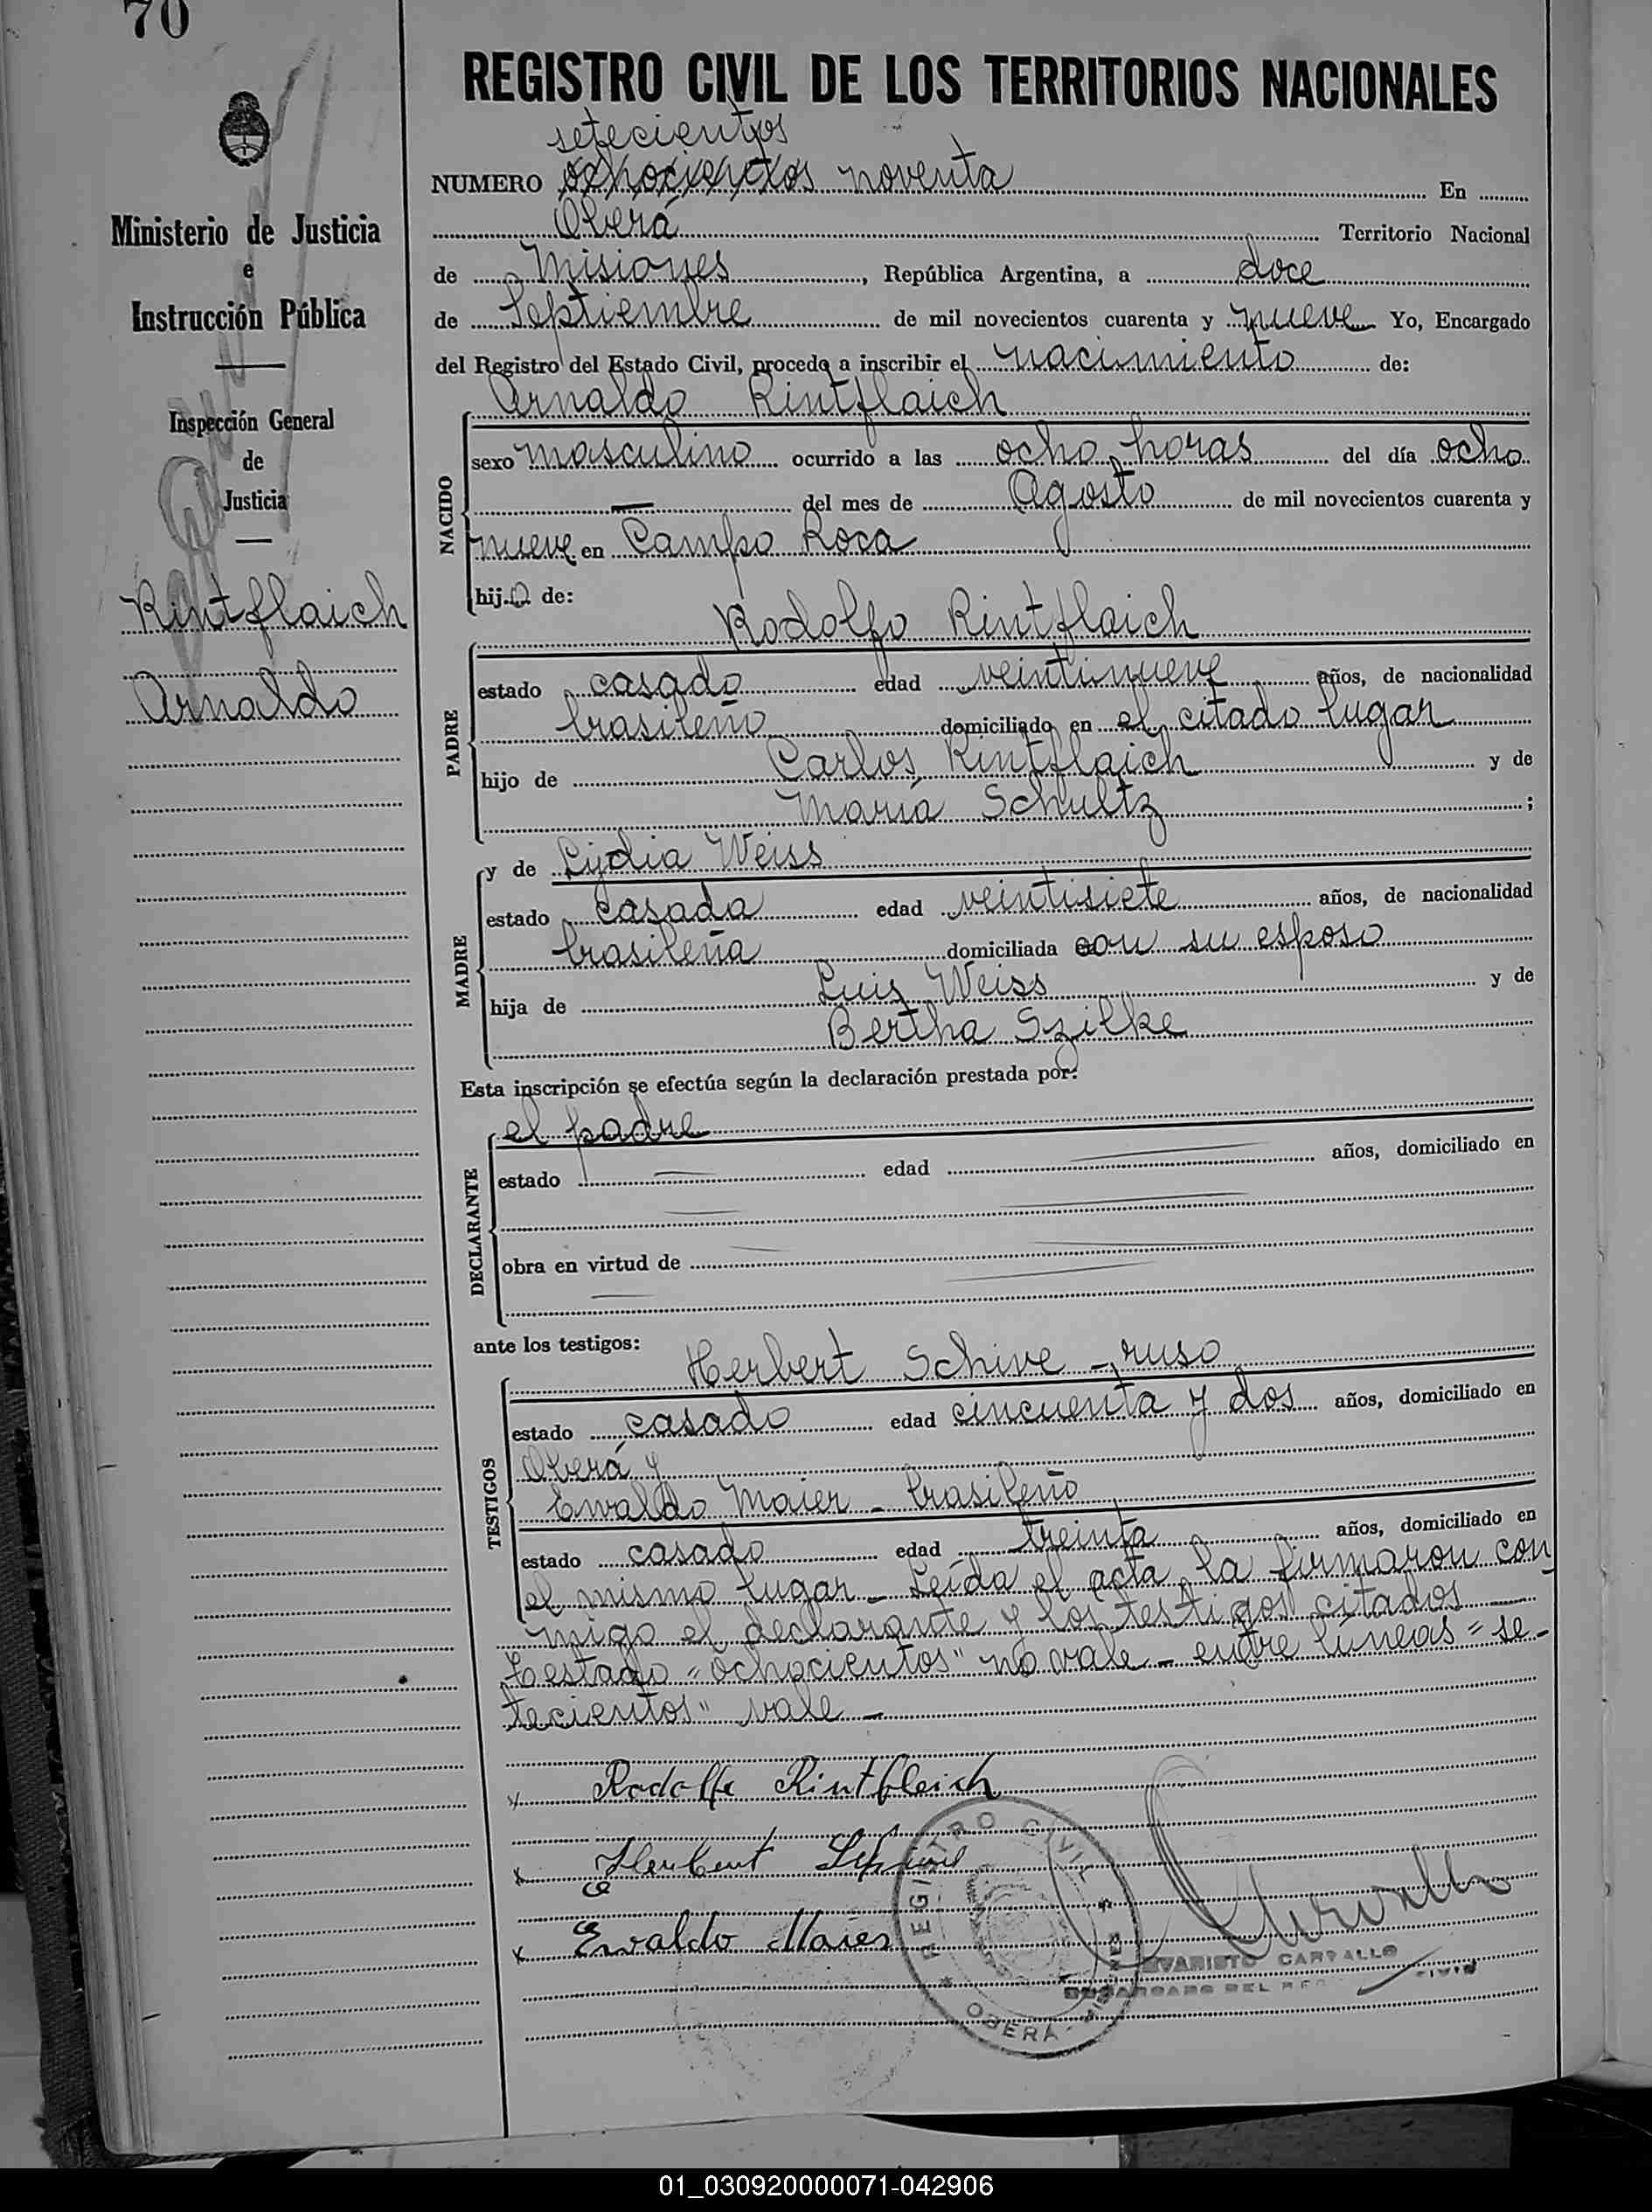 70
REGISTRO CIVIL DE LOS TERRITORIOS NACIONALES
Ministerio de Justicia
e
Instrucción Pública
Inspección General
de
Justicia
Rintflaich
Arnaldo
setecientos
NUMERO ochocientos noventa En
Oberá Territorio Nacional
de Misiones, República Argentina, a doce
de Septiembre de mil novecientos cuarenta y nueve Yo, Encargado
del Registro del Estado Civil, procedo a inscribir el nacimiento de:
Arnaldo Rintflaich
NACIDO
sexo masculino ocurrido a las ocho horas del día ocho
— del mes de Agosto de mil novecientos cuarenta y
nueve en Campo Roca
hijo de:
Rodolfo Rintflaich
PADRE
estado casado edad veintinueve años, de nacionalidad
brasileño domiciliado en el citado lugar
hijo de Carlos Rintflaich y de
María Schultz ;
y de Lydia Weiss
MADRE
estado casada edad veintisiete años, de nacionalidad
brasileña domiciliada con su esposo
hija de Luis Weiss y de
Bertha Szilke
Esta inscripción se efectúa según la declaración prestada por:
el padre
DECLARANTE
estado edad años, domiciliado en
obra en virtud de
ante los testigos:
Herbert Schive - ruso
TESTIGOS
estado casado edad cincuenta y dos años, domiciliado en
Oberá y
Ewaldo Maier - brasileño
estado casado edad treinta años, domiciliado en
el mismo lugar - Leída el acta, la firmaron con
migo el declarante y los testigos citados —
Testado "ochocientos" no vale - entre líneas = se-
tecientos" vale -
x Rodolfo Rintfleich
x Herbert
x Ewaldo Maier
REGISTRO CIVIL
OBERÁ - MISIONES
EVARISTO CARVALLO
ENCARGADO DEL REG. CIVIL
01_030920000071-042906